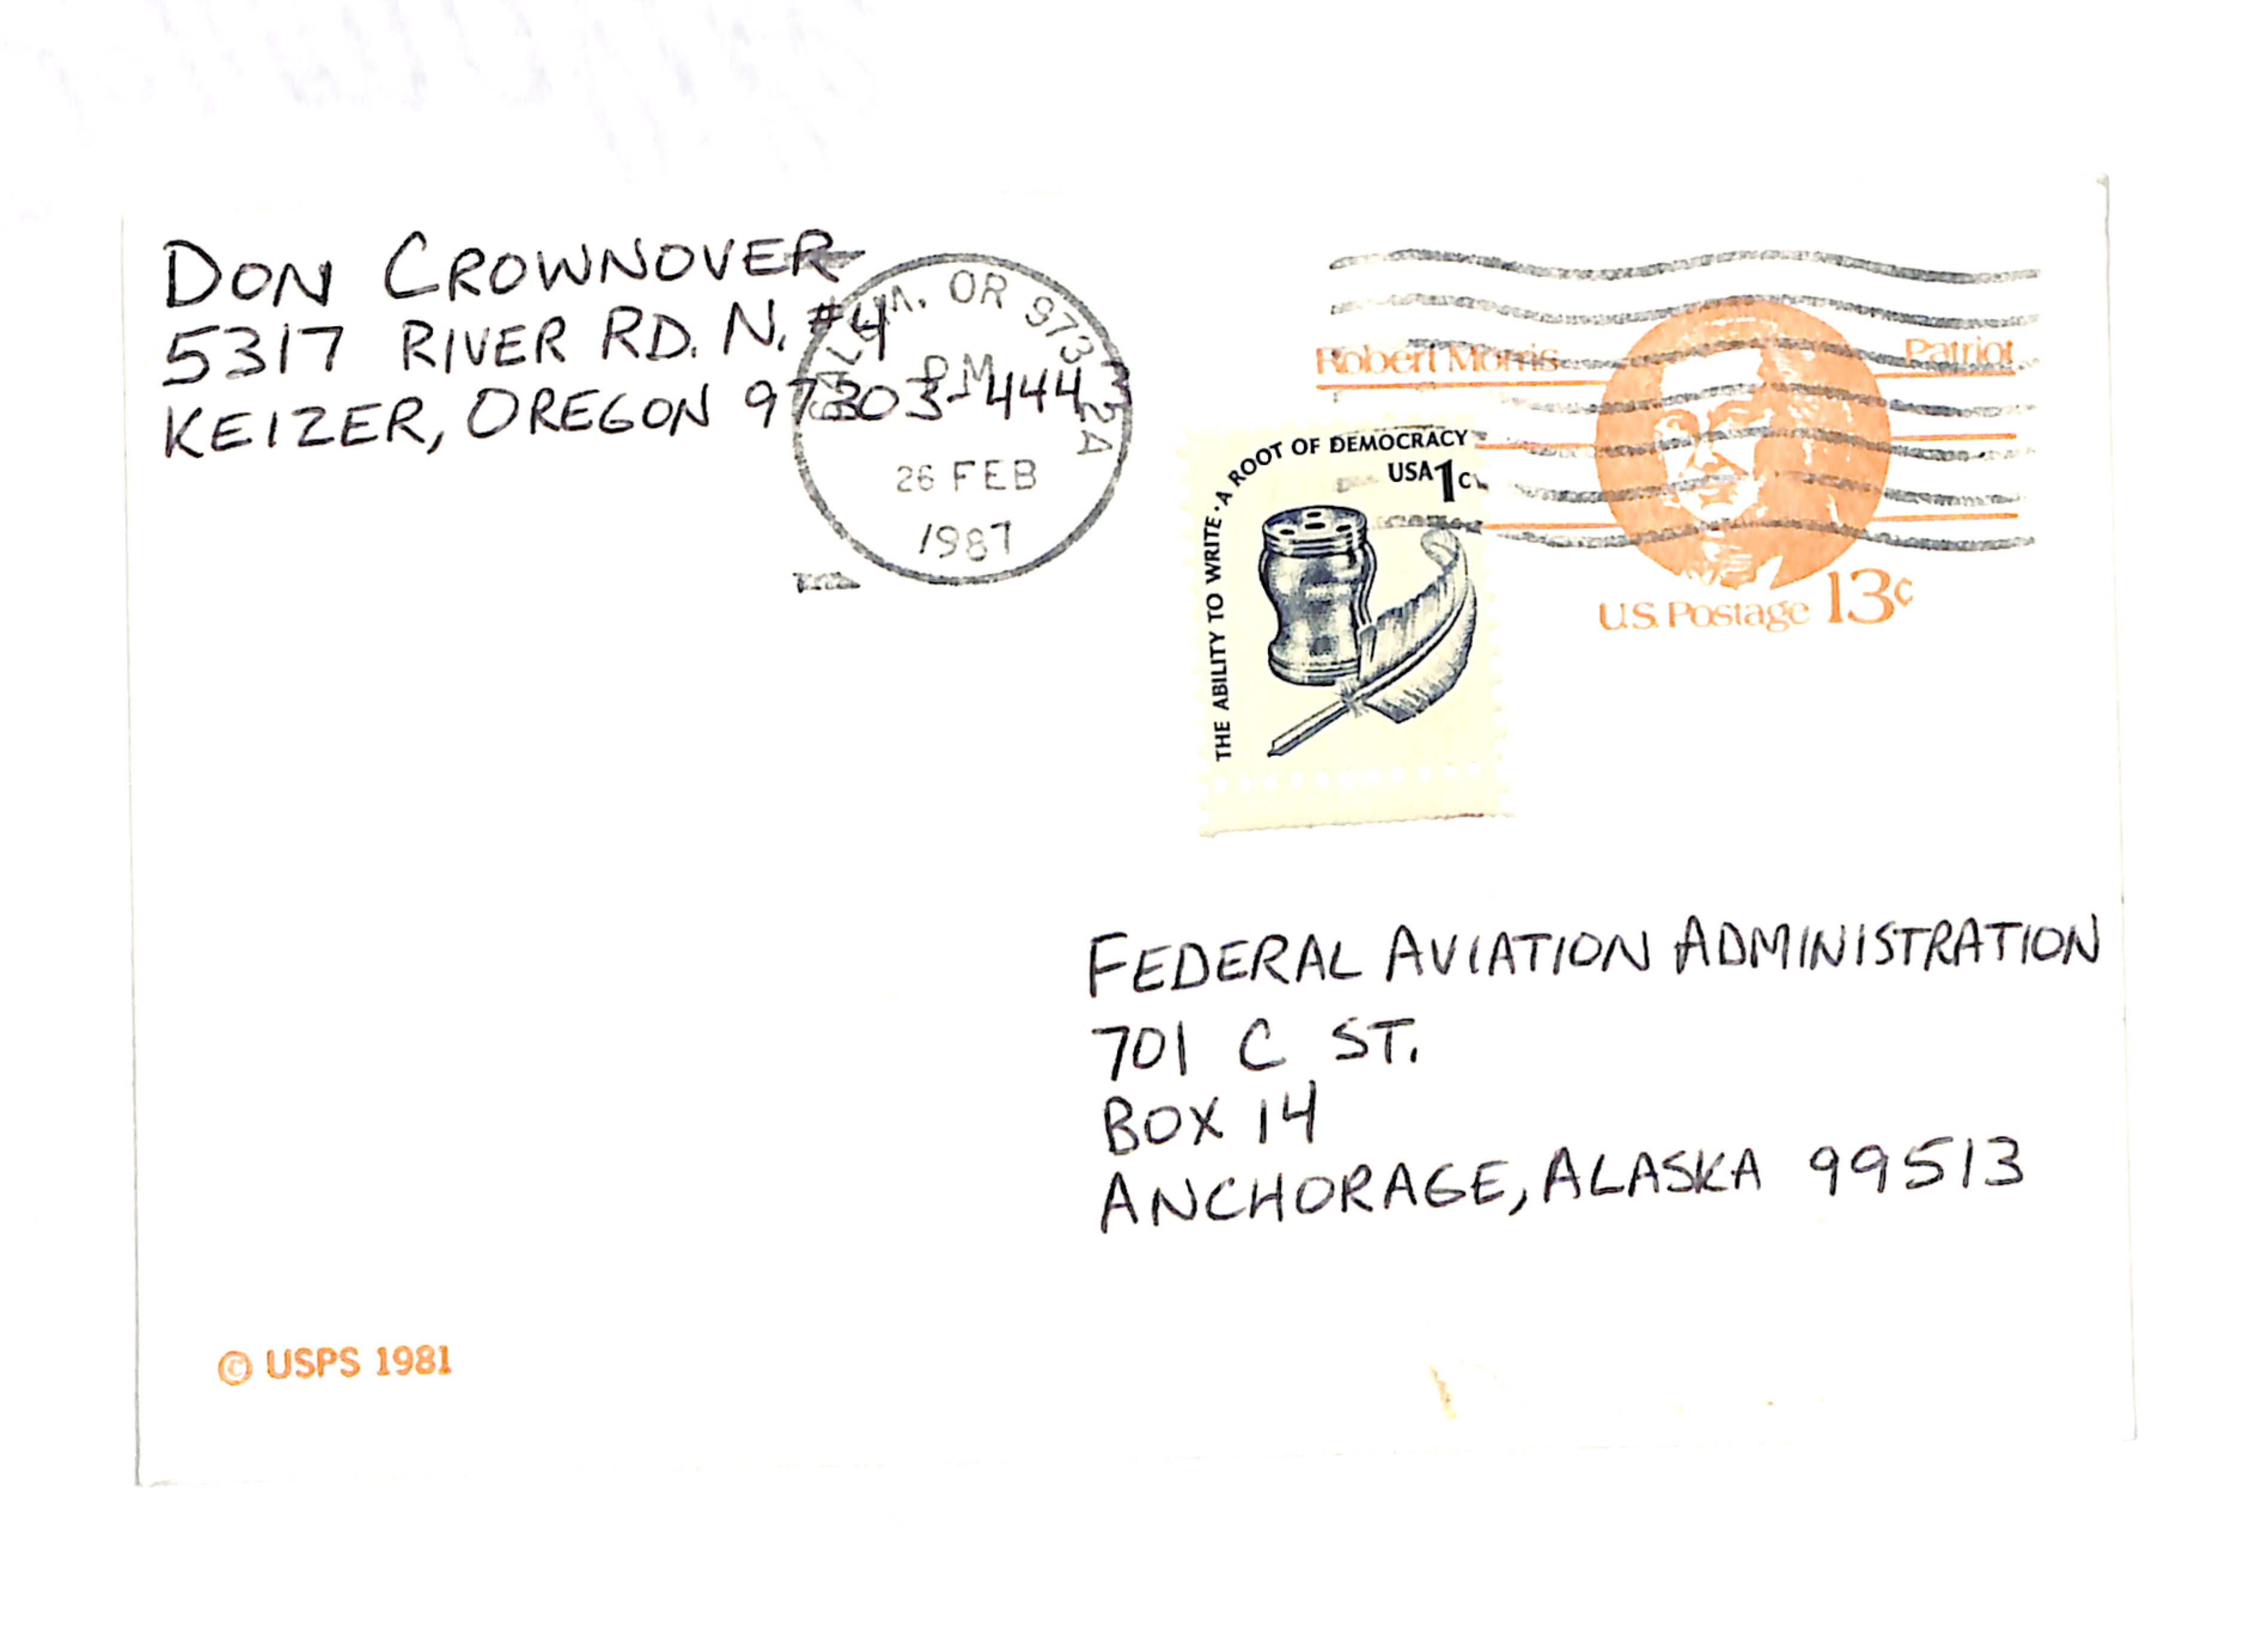 DON CROWNOVER
5317 RIVER RD. N. #4
KEIZER, OREGON 97303-4443
OR 973
PM
26 FEB
1987
Robert Morris
Patriot
U.S. Postage 13¢
THE ABILITY TO WRITE • A ROOT OF DEMOCRACY
USA 1c
FEDERAL AVIATION ADMINISTRATION
701 C ST.
BOX 14
ANCHORAGE, ALASKA 99513
© USPS 1981